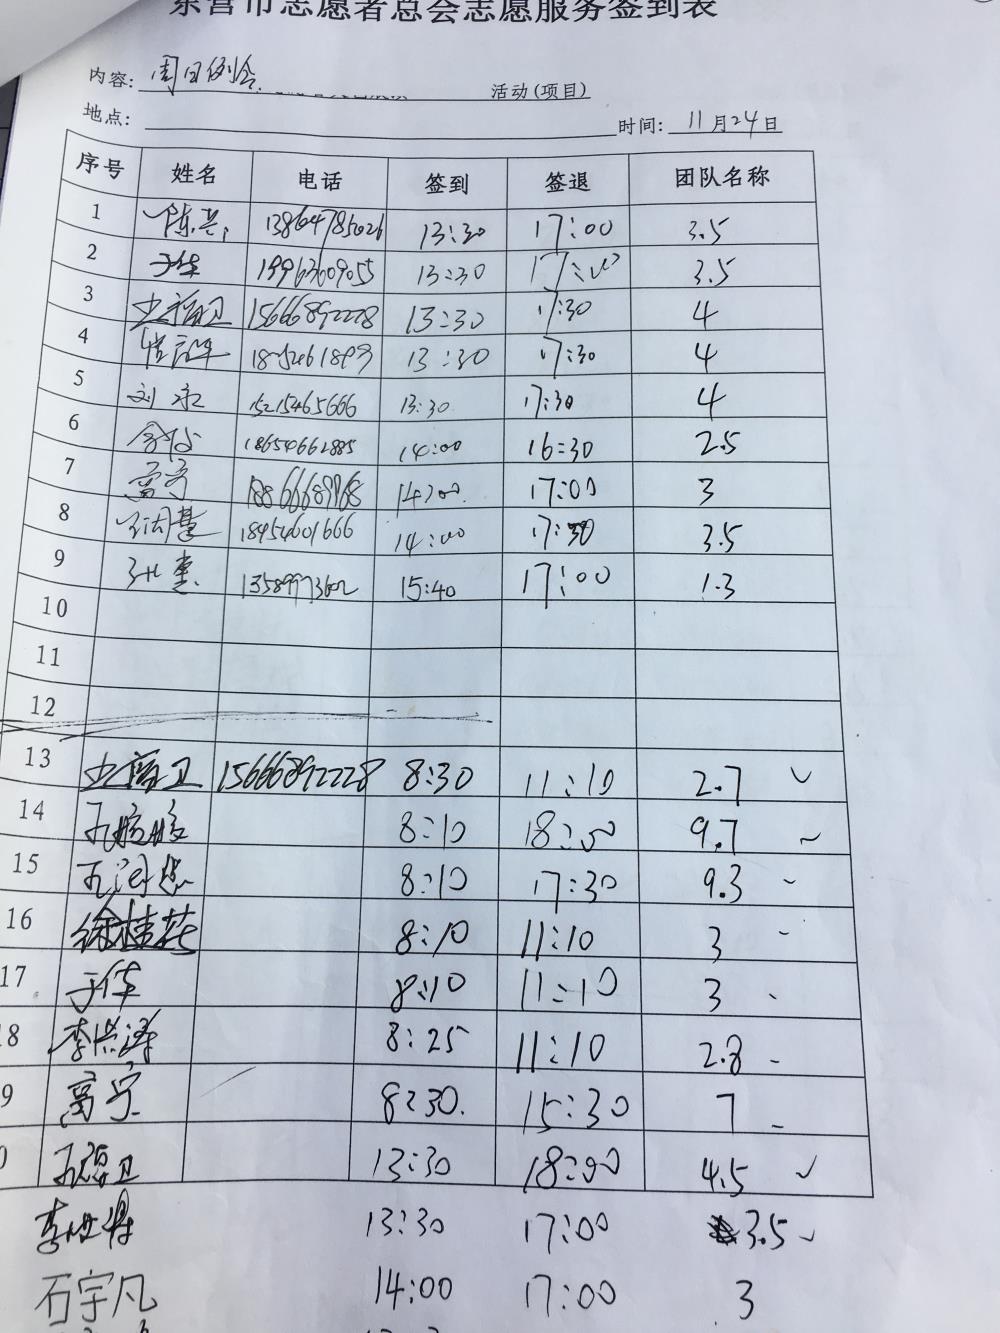 东营市志愿者总会志愿服务签到表
内容: 周日例会 活动(项目)
地点: 时间: 11月24日
序号 姓名 电话 签到 签退 团队名称
1 13864785026 13:30 17:00 3.5
2 于华 19963609055 13:30 17:00 3.5
3 15666892228 13:30 17:30 4
4 13:30 17:30 4
5 刘永 15215465666 13:30 17:30 4
6 18654662885 14:00 16:30 2.5
7 高宁 18866689968 14:00 17:00 3
8 18954601666 14:00 17:30 3.5
9 13589973602 15:40 17:00 1.3
10
11
12
13 15666892228 8:30 11:10 2.7
14 8:10 18:00 9.7
15 8:10 17:30 9.3
16 徐桂花 8:10 11:10 3
17 于华 8:10 11:10 3
18 8:25 11:10 2.8
9 高宁 8:30. 15:30 7
0 13:30 18:00 4.5
13:30 17:00 3.5
石宇凡 14:00 17:00 3